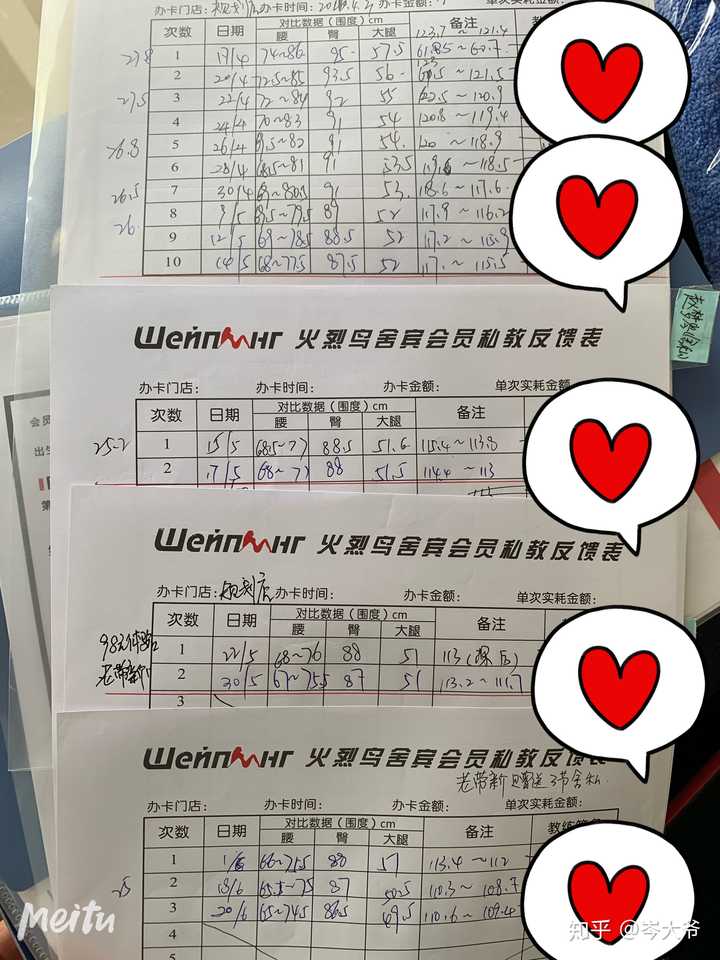 办卡门店: 办卡时间: 办卡金额:
次数 日期 对比数据(围度)cm 备注
腰 臀 大腿 123.7 ~ 121.4
27.8 1 19/4 74~86 95 57.5
2 20/4 72.5~85 93.5 56
27.5 3 22/4 72~84 92 55 122.5 ~ 120.9
4 24/4 70~83 91 54 120.8 ~ 119.4
26.8 5 26/4 69.5~82 91 54 120 ~ 118.9
6 28/4 68.5~81 91 53.5 119.6 ~ 118.5
26.5 7 30/4 69~80.5 91 53 118.6 ~ 117.6
26 8 9/5 68.5~79.5 89 52 117.9 ~ 116.2
9 12/5 69~78.5 88.5 52 117.2 ~
10 14/5 68~77.5 87.5 52 117. ~ 115.5
Шейпинг 火烈鸟舍宾会员私教反馈表
办卡门店: 办卡时间: 办卡金额: 单次实耗金额
次数 日期 对比数据(围度)cm 备注
腰 臀 大腿
25.2 1 15/5 68.5~77 88.5 51.6 115.4 ~ 113.8
2 17/5 68~77 88 51.5 114.4 ~ 113
Шейпинг 火烈鸟舍宾会员私教反馈表
办卡门店: 规划店 办卡时间: 办卡金额: 单次实耗金额:
次数 日期 对比数据(围度)cm 备注
腰 臀 大腿
98元体验
老带新 1 22/5 68~76 88 51 113 (课后)
2 30/5 67~75.5 87 51 113.2 ~ 111.7
3
Шейпинг 火烈鸟舍宾会员私教反馈表
老带新 赠送3节舍私.
办卡门店: 办卡时间: 办卡金额: 单次实耗金额:
次数 日期 对比数据(围度)cm 备注
腰 臀 大腿
1 1/6 66~75.5 88 51 113.4 ~ 112
25 2 18/6 65.5~75 87 50.5 110.3 ~ 108.7
3 20/6 65~74.5 86.5 49.5 110.6 ~ 109.4
4
5
Meitu
知乎 @岑大爷